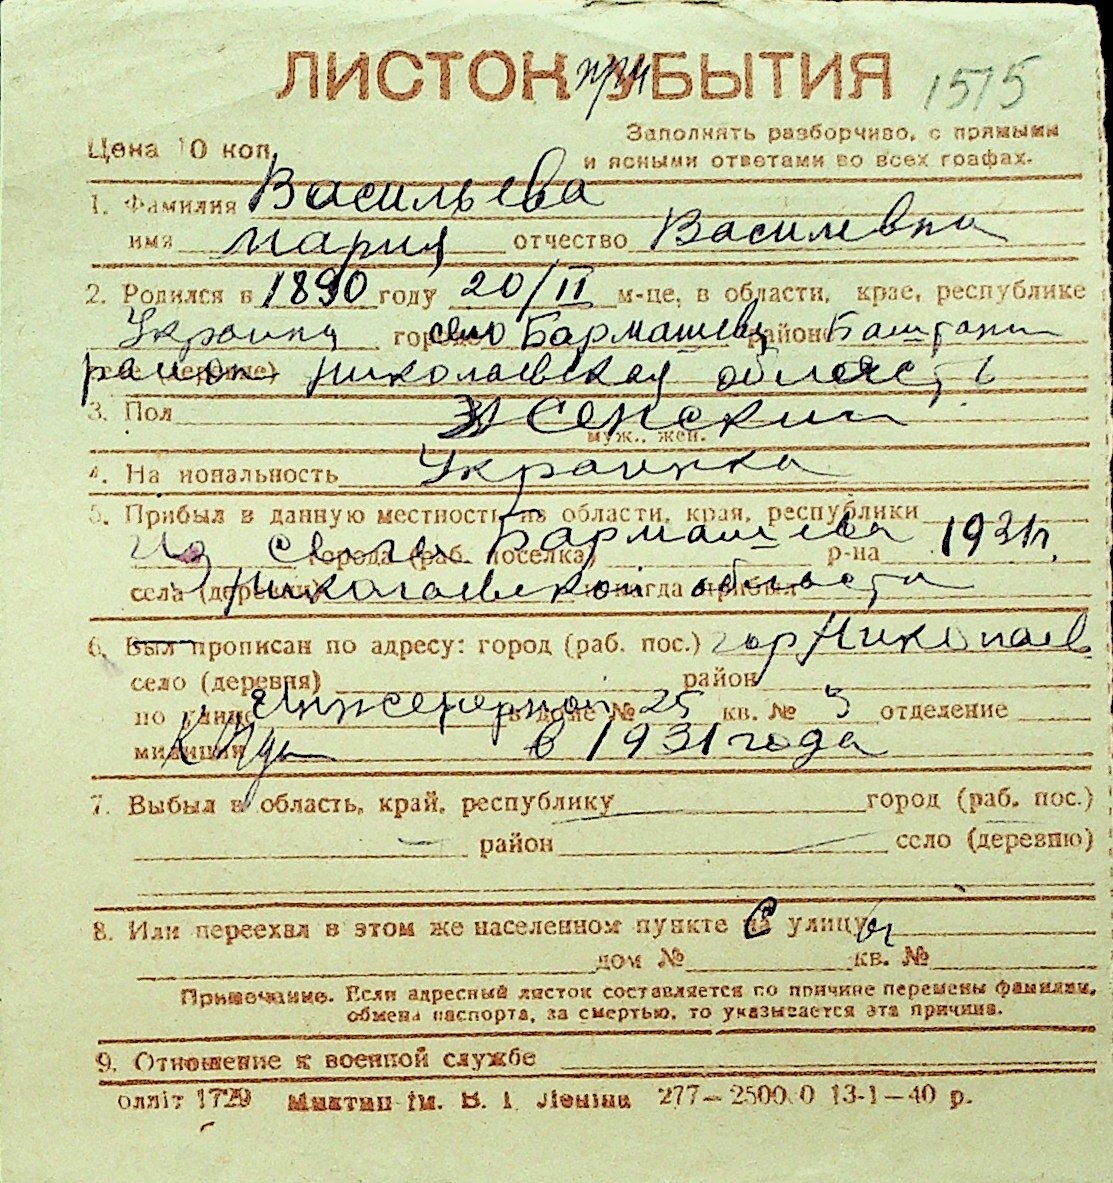 ЛИСТОК при УБЫТИЯ 1515
Цена 10 коп. Заполнять разборчиво, с прямыми
и ясными ответами во всех графах.
1. Фамилия Васильева
имя Мария отчество Василевна
2. Родился в 1890 году 20/II м-це, в области, крае, республике
Украина город село Бармашева район Баштанк
район Николаевская область
3. Пол Женский
муж., жен.
4. На иональность Украинка
5. Прибыл в данную местность из области, края, республики
Из села Бармашева 1931г.
города (раб. поселка) р-на
села (деревни) Николаевской области когда прибыл
6. Был прописан по адресу: город (раб. пос.) гор Николаев
село (деревня) район
по улице Инженерной в доме № 25 кв. № 3 отделение
милиции в 1931 года
7. Выбыл в область, край, республику город (раб. пос.)
район село (деревню)
8. Или переехал в этом же населенном пункте на С улицу ы
дом № кв. №
Примечание. Если адресный листок составляется по причине перемены фамилии,
обмена паспорта, за смертью, то указывается эта причина.
9. Отношение к военной службе
олліт 1729 Миктип ім. В. І. Леніна 277—2500 0 13-1—40 р.